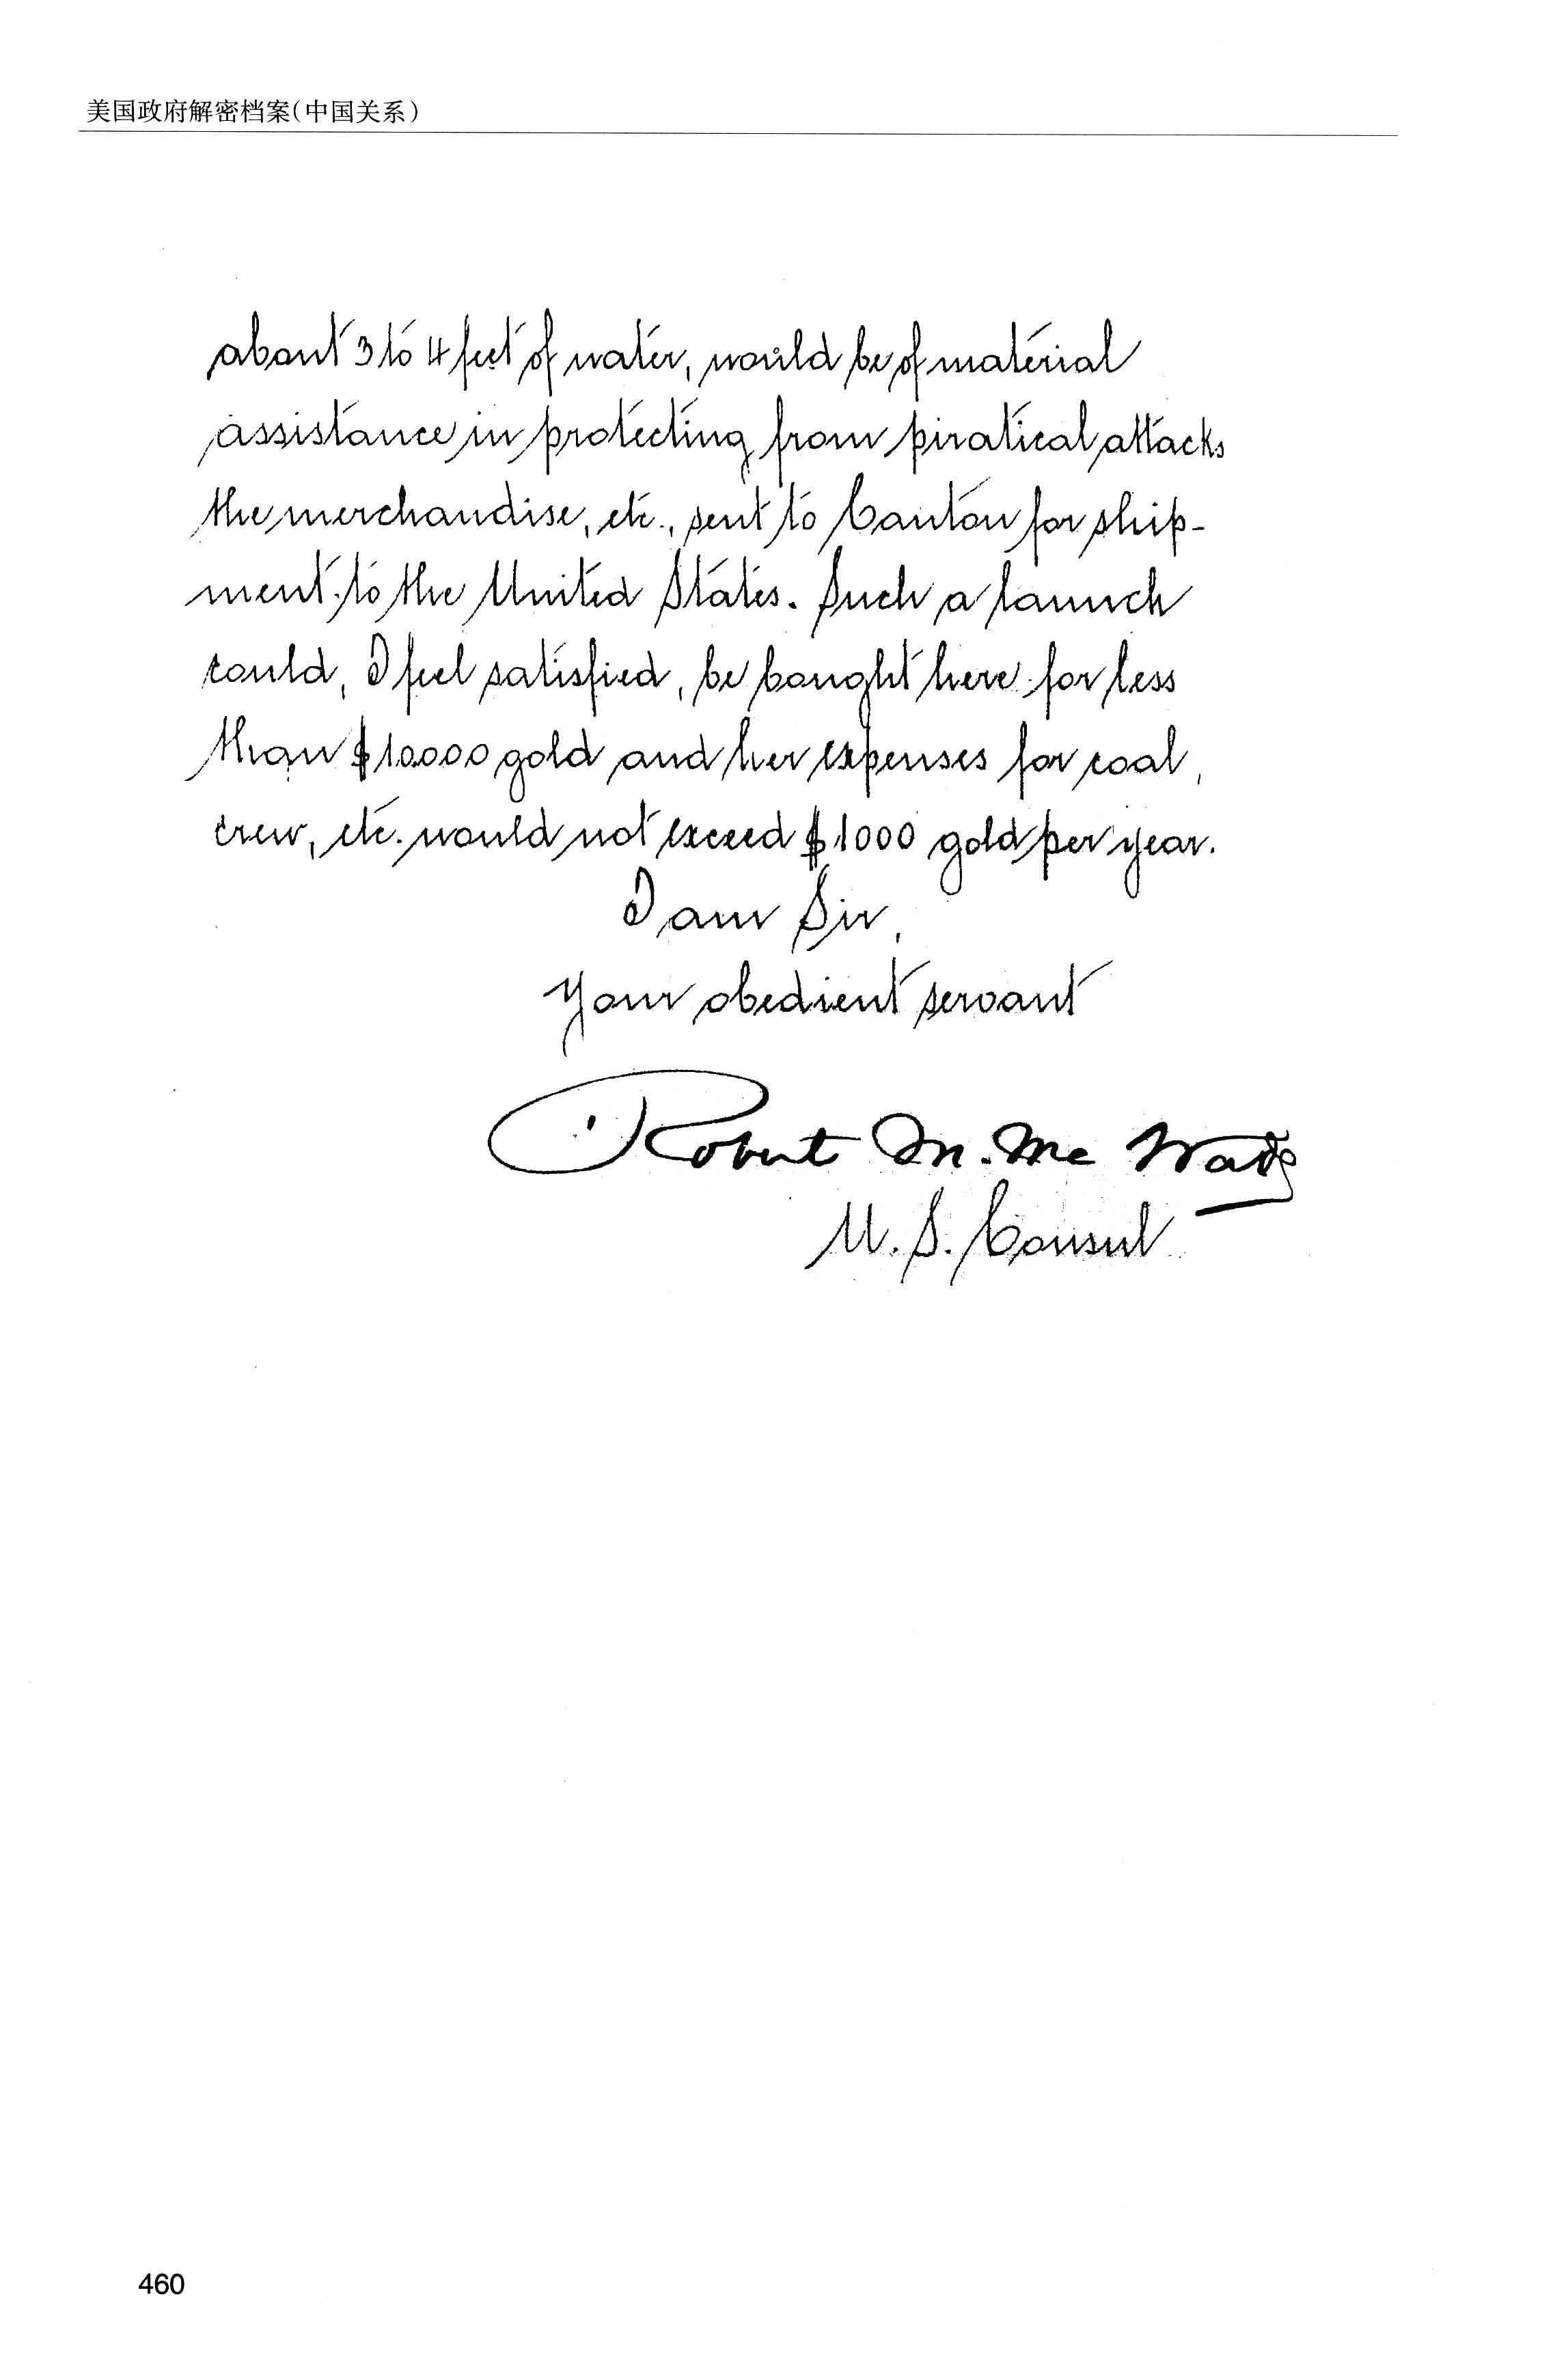 美国政府解密档案(中国关系)
about 3 to 4 feet of water, would be of material
assistance in protecting from piratical attacks
the merchandise, etc., sent to Canton for ship-
ment to the United States. Such a launch
could, I feel satisfied, be bought here for less
than $10000 gold and her expenses for coal,
crew, etc. would not exceed $1000 gold per year.
I am Sir,
Your obedient servant
Robert M. McWade
U. S. Consul
460